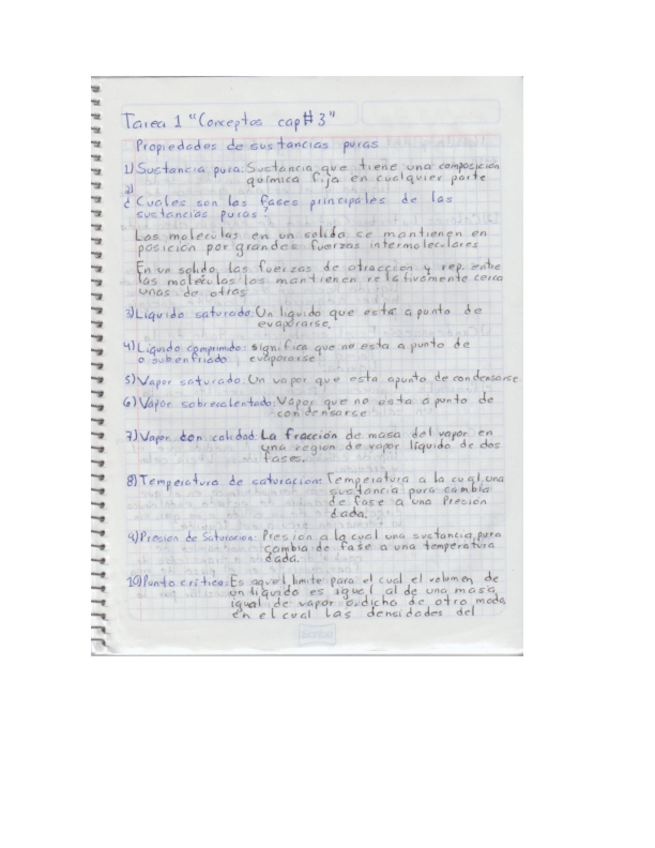 Tarea 1 "Conceptos cap#3"
Propiedades de sustancias puras
1) Sustancia pura: Sustancia que tiene una composición
química fija en cualquier parte
2)
¿Cuales son las fases principales de las
sustancias puras?
Las moleculas en un solido se mantienen en
posición por grandes fuerzas intermoleculares
En un solido, las fuerzas de atracción y rep. entre
las moleculas las mantienen relativamente cerca
unas de otras
3) Liquido saturado: Un liquido que está a punto de
evaporarse.
4) Liquido comprimido: significa que no esta a punto de
o subenfriado evaporarse
5) Vapor saturado: Un vapor que esta apunto de condensarse
6) Vapor sobrecalentado: Vapor que no esta a punto de
condensarse
7) Vapor con calidad: La fracción de masa del vapor en
una region de vapor líquido de dos
fases.
8) Temperatura de saturacion: Temperatura a la cual una
sustancia pura cambia
de fase a una Presion
dada.
9) Presion de Saturacion: Presion a la cual una sustancia pura
cambia de fase a una temperatura
dada.
10) Punto critico: Es aquel limite para el cual el volumen de
un liquido es igual al de una masa
igual de vapor o dicho de otro modo,
en el cual las densidades del